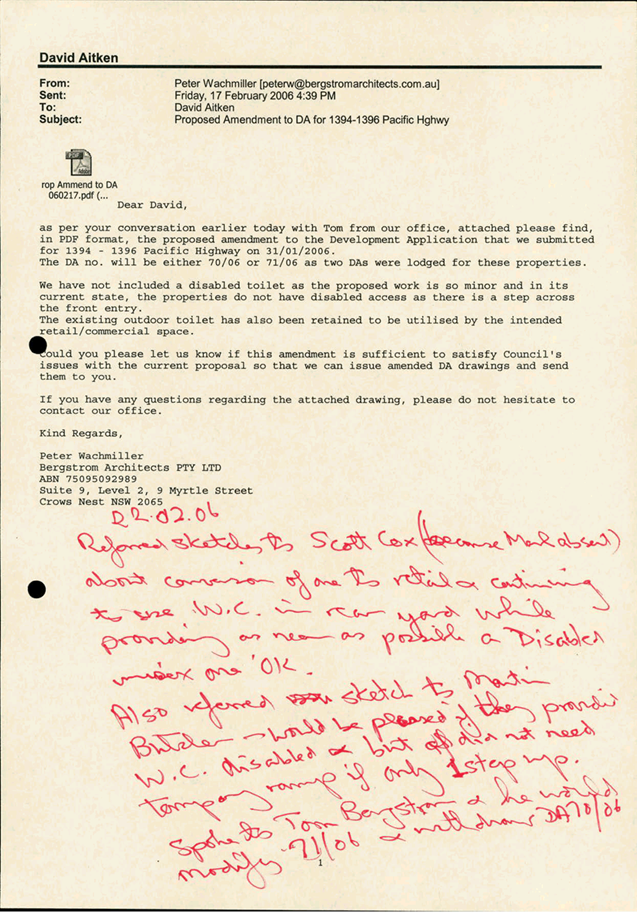 David Aitken
From: Peter Wachmiller [peterw@bergstromarchitects.com.au]
Sent: Friday, 17 February 2006 4:39 PM
To: David Aitken
Subject: Proposed Amendment to DA for 1394-1396 Pacific Hghwy
PDF
Adobe
rop Ammend to DA
060217.pdf (...
Dear David,
as per your conversation earlier today with Tom from our office, attached please find,
in PDF format, the proposed amendment to the Development Application that we submitted
for 1394 - 1396 Pacific Highway on 31/01/2006.
The DA no. will be either 70/06 or 71/06 as two DAs were lodged for these properties.
We have not included a disabled toilet as the proposed work is so minor and in its
current state, the properties do not have disabled access as there is a step across
the front entry.
The existing outdoor toilet has also been retained to be utilised by the intended
retail/commercial space.
Could you please let us know if this amendment is sufficient to satisfy Council's
issues with the current proposal so that we can issue amended DA drawings and send
them to you.
If you have any questions regarding the attached drawing, please do not hesitate to
contact our office.
Kind Regards,
Peter Wachmiller
Bergstrom Architects PTY LTD
ABN 75095092989
Suite 9, Level 2, 9 Myrtle Street
Crows Nest NSW 2065
22.02.06
Referred sketches to Scott Cox (because Mark absent)
about conversion of one to retail & continuing
to use W.C. in rear yard while
providing as near as possible a Disabled
unisex one 'OK.
Also referred sketch to Martin
Butcher - would be pleased if they provide
W.C. disabled & but did not need
ramp if only 1 step up.
Spoke to Tom Bergstrom & he would
modify 71/06 & withdraw DA70/06
1